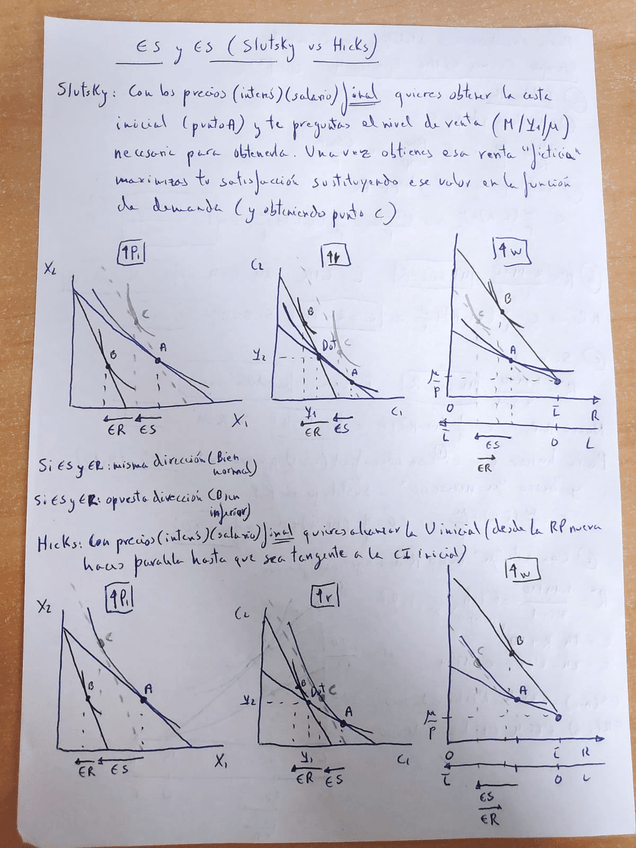 ES y ES (Slutsky vs Hicks)
Slutsky: Con los precios (interés) (salario) final quieres obtener la cesta
inicial (punto A) y te preguntas el nivel de renta (M/Y1/μ)
necesaria para obtenerla. Una vez obtienes esa renta "ficticia"
maximizas tu satisfacción sustituyendo ese valor en la función
de demanda (y obteniendo punto C)
↑P1
↑r
↑w
X2
C
A
B
X1
ER
ES
C2
B
C
Dot
A
Y2
Y1
C1
ER
ES
B
C
A
μ/P
O
L̄
R
L̄
O
L
ES
ER
Si ES y ER: misma dirección (Bien
normal)
Si ES y ER: opuesta dirección (Bien
inferior)
Hicks: Con precios (interés) (salario) final quieres alcanzar la U inicial (desde la RP nueva
haces paralela hasta que sea tangente a la CI inicial)
↑P1
↑r
↑w
X2
C
B
A
X1
ER
ES
C2
B
Dot
C
A
Y2
Y1
C1
ER
ES
B
C
A
μ/P
O
L̄
R
L̄
O
L
ES
ER